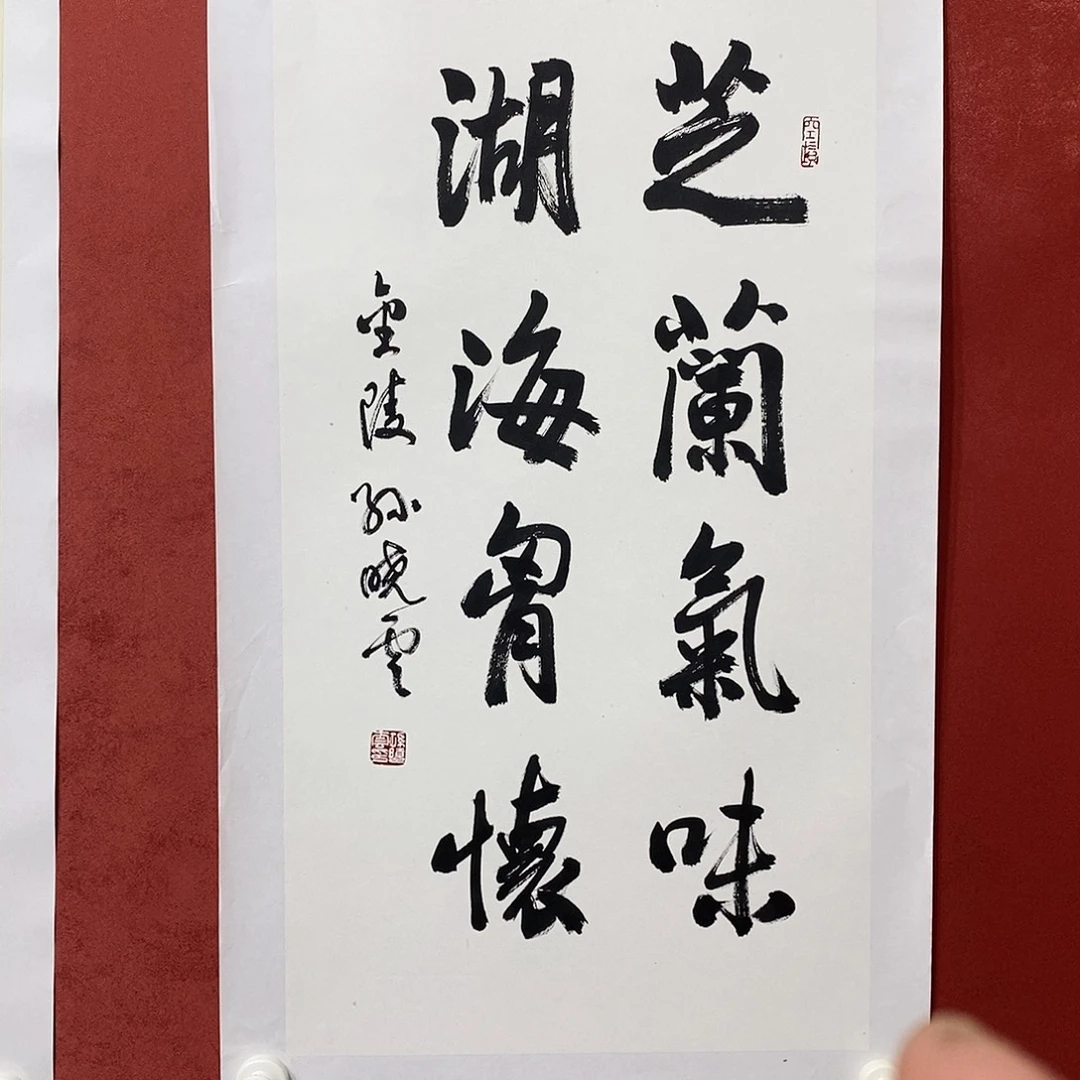 芝蘭氣味
湖海胷懷
金陵孫曉雲